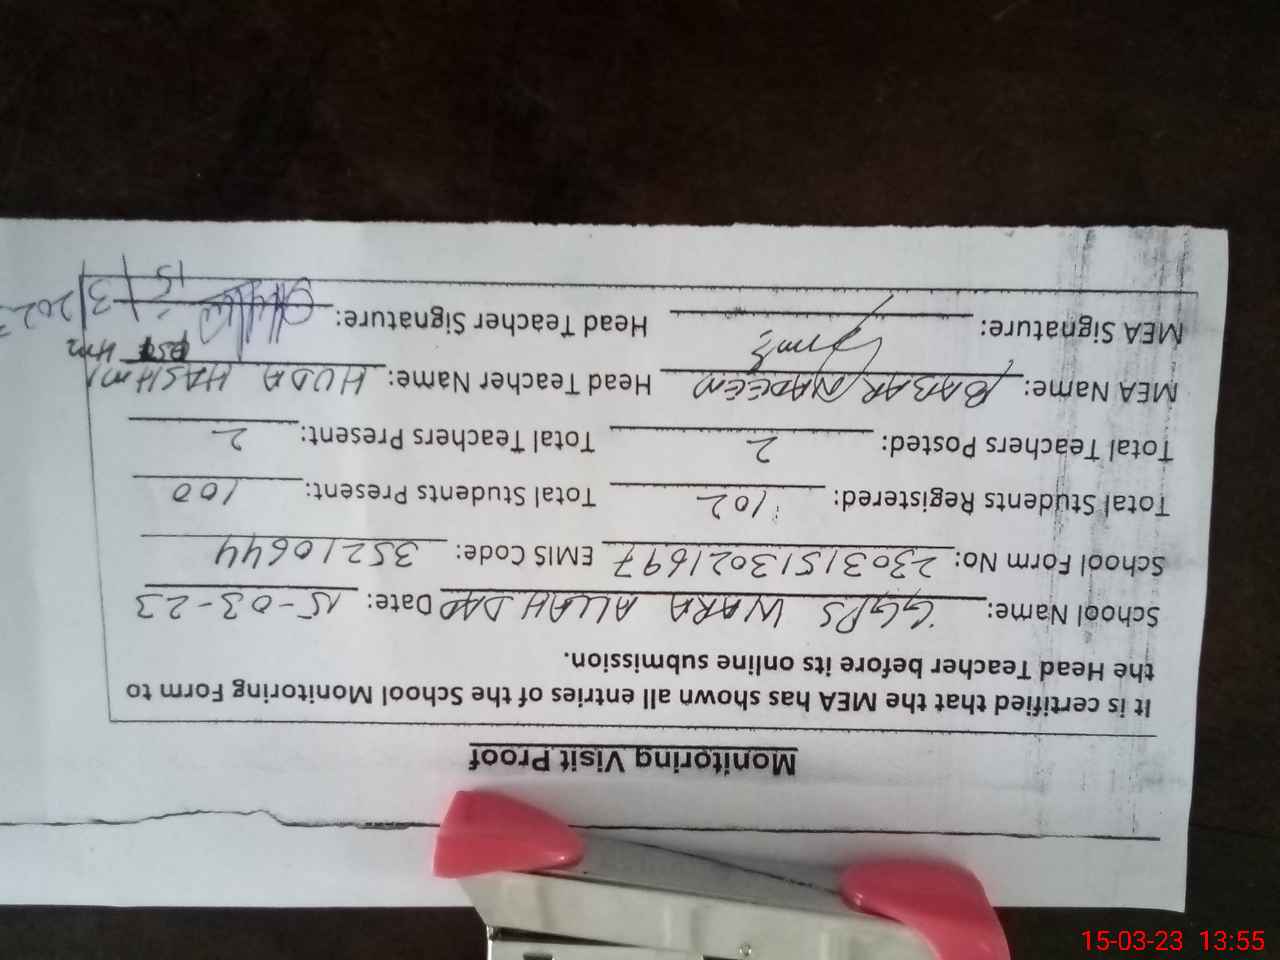 Monitoring Visit Proof
It is certified that the MEA has shown all entries of the School Monitoring Form to
the Head Teacher before its online submission.
School Name: GGPS WARA ALLAH DAD Date: 15-03-23
School Form No: 23031513021697 EMIS Code: 35210644
Total Students Registered: 102 Total Students Present: 100
Total Teachers Posted: 2 Total Teachers Present: 2
MEA Name: BABAR NADEEM Head Teacher Name: HUDA HASHMI
MEA Signature: Head Teacher Signature: 15/3/2023
15-03-23 13:55